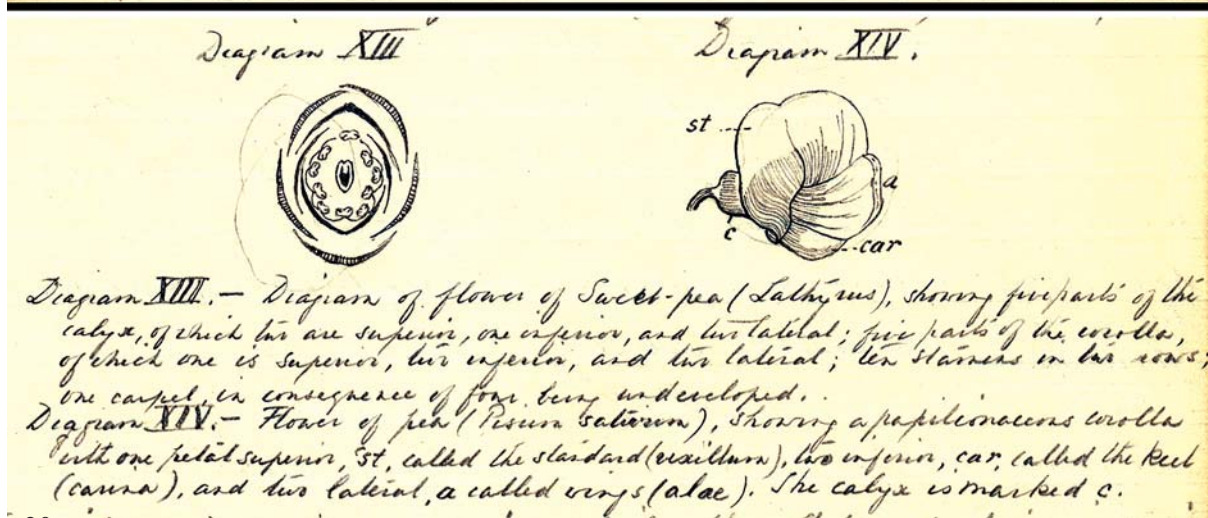 Diagram XIII
Diagram XIV.
st
a
c
car
Diagram XIII. — Diagram of flower of Sweet-pea (Lathyrus), showing five parts of the
calyx, of which two are superior, one inferior, and two lateral; five parts of the corolla,
of which one is superior, two inferior, and two lateral; ten stamens in two rows;
one carpel, in consequence of four being undeveloped.
Diagram XIV. — Flower of pea (Pisum sativum), showing a papilionaceous corolla
with one petal superior, st, called the standard (vexillum), two inferior, car, called the keel
(carina), and two lateral, a called wings (alae). The calyx is marked c.